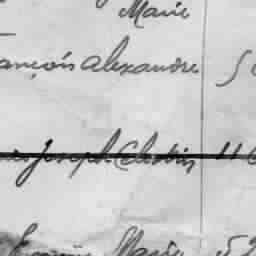 Marie
ançois Alexandre 5
Joseph Célestin 11
Marie 52